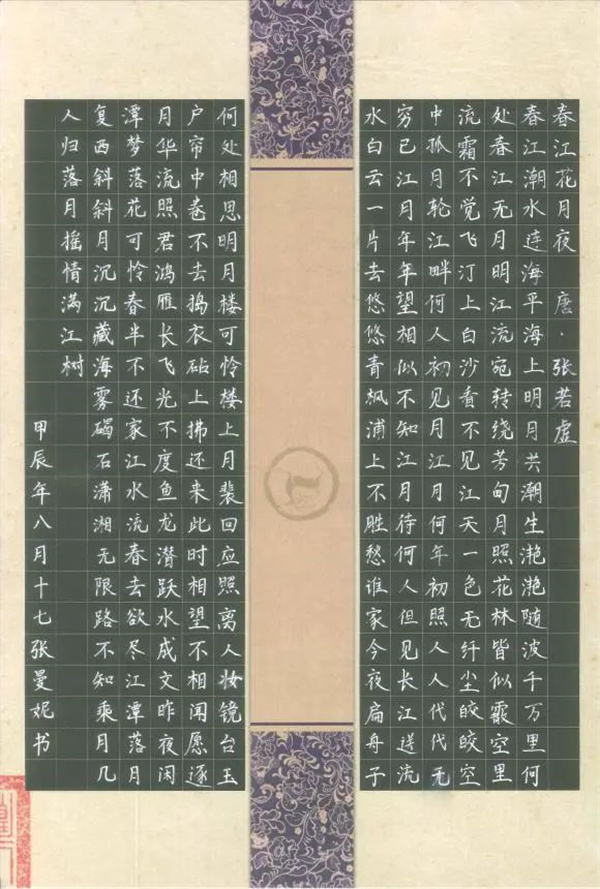 春江花月夜 唐·张若虚
春江潮水连海平海上明月共潮生滟滟随波千万里何
处春江无月明江流宛转绕芳甸月照花林皆似霰空里
流霜不觉飞汀上白沙看不见江天一色无纤尘皎皎空
中孤月轮江畔何人初见月江月何年初照人人代代无
穷已江月年年望相似不知江月待何人但见长江送流
水白云一片去悠悠青枫浦上不胜愁谁家今夜扁舟子
何处相思明月楼可怜楼上月裴回应照离人妆镜台玉
户帘中卷不去捣衣砧上拂还来此时相望不相闻愿逐
月华流照君鸿雁长飞光不度鱼龙潜跃水成文昨夜闲
潭梦落花可怜春半不还家江水流春去欲尽江潭落月
复西斜斜月沉沉藏海雾碣石潇湘无限路不知乘月几
人归落月摇情满江树
甲辰年八月十七张曼妮书